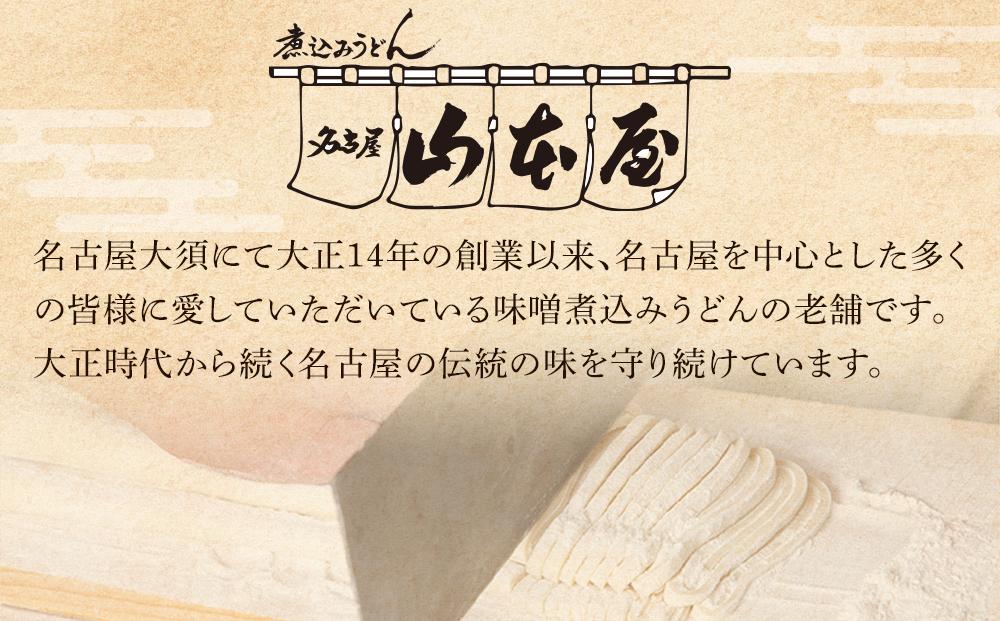 煮込みうどん
名古屋 山本屋
名古屋大須にて大正14年の創業以来、名古屋を中心とした多く
の皆様に愛していただいている味噌煮込みうどんの老舗です。
大正時代から続く名古屋の伝統の味を守り続けています。